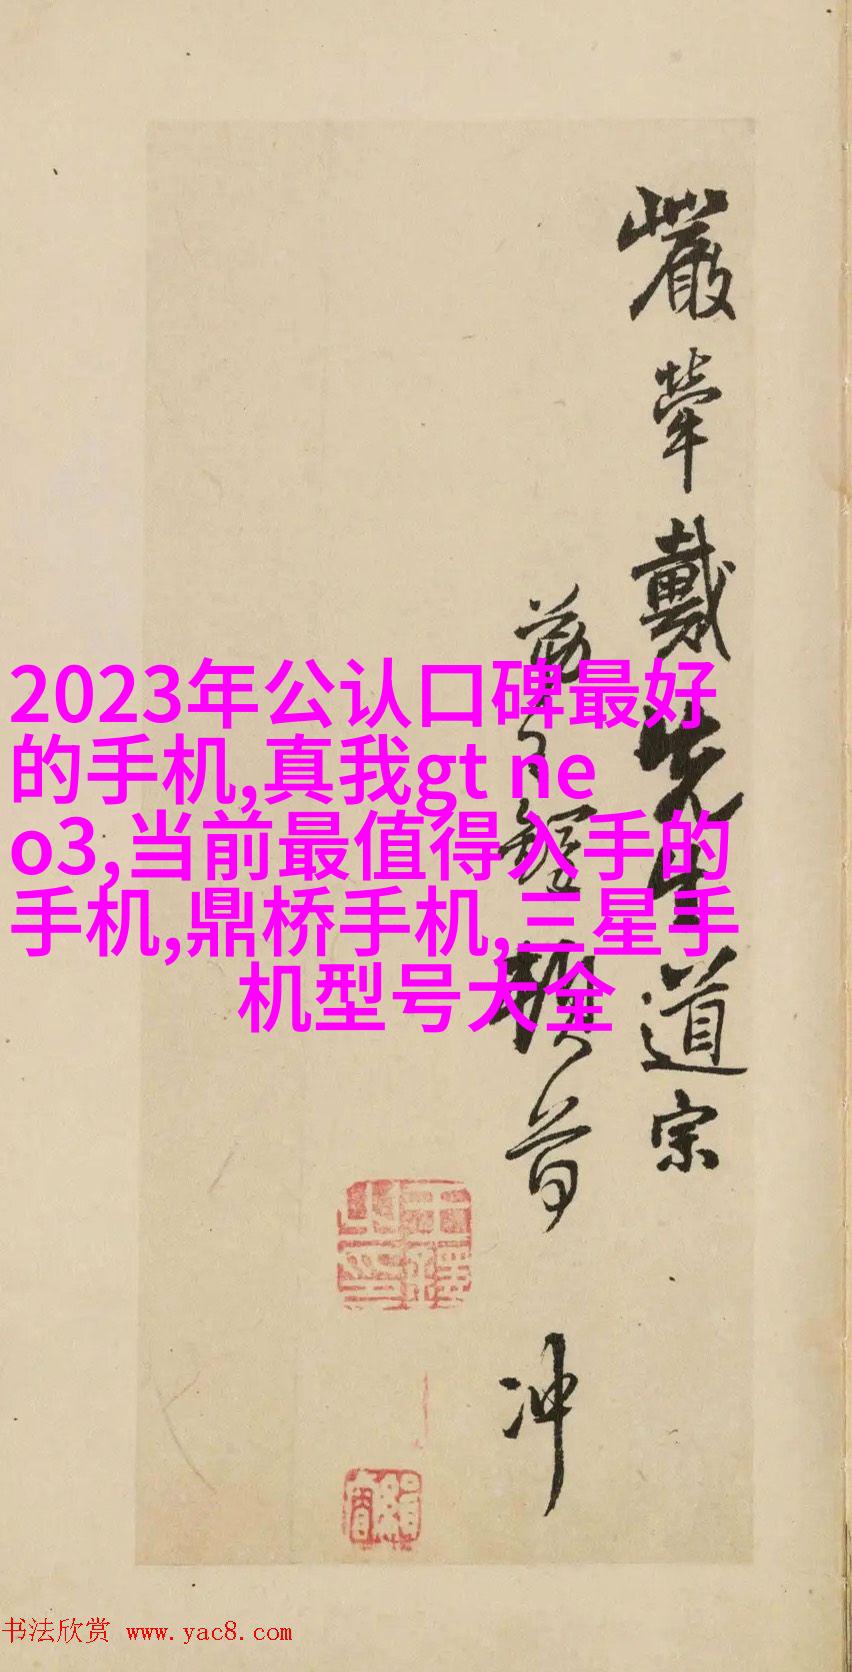 嚴犖戴先生道宗
冲
2023年公认口碑最好
的手机,真我gt ne
o3,当前最值得入手的
手机,鼎桥手机,三星手
机型号大全
书法欣赏 www.yac8.com